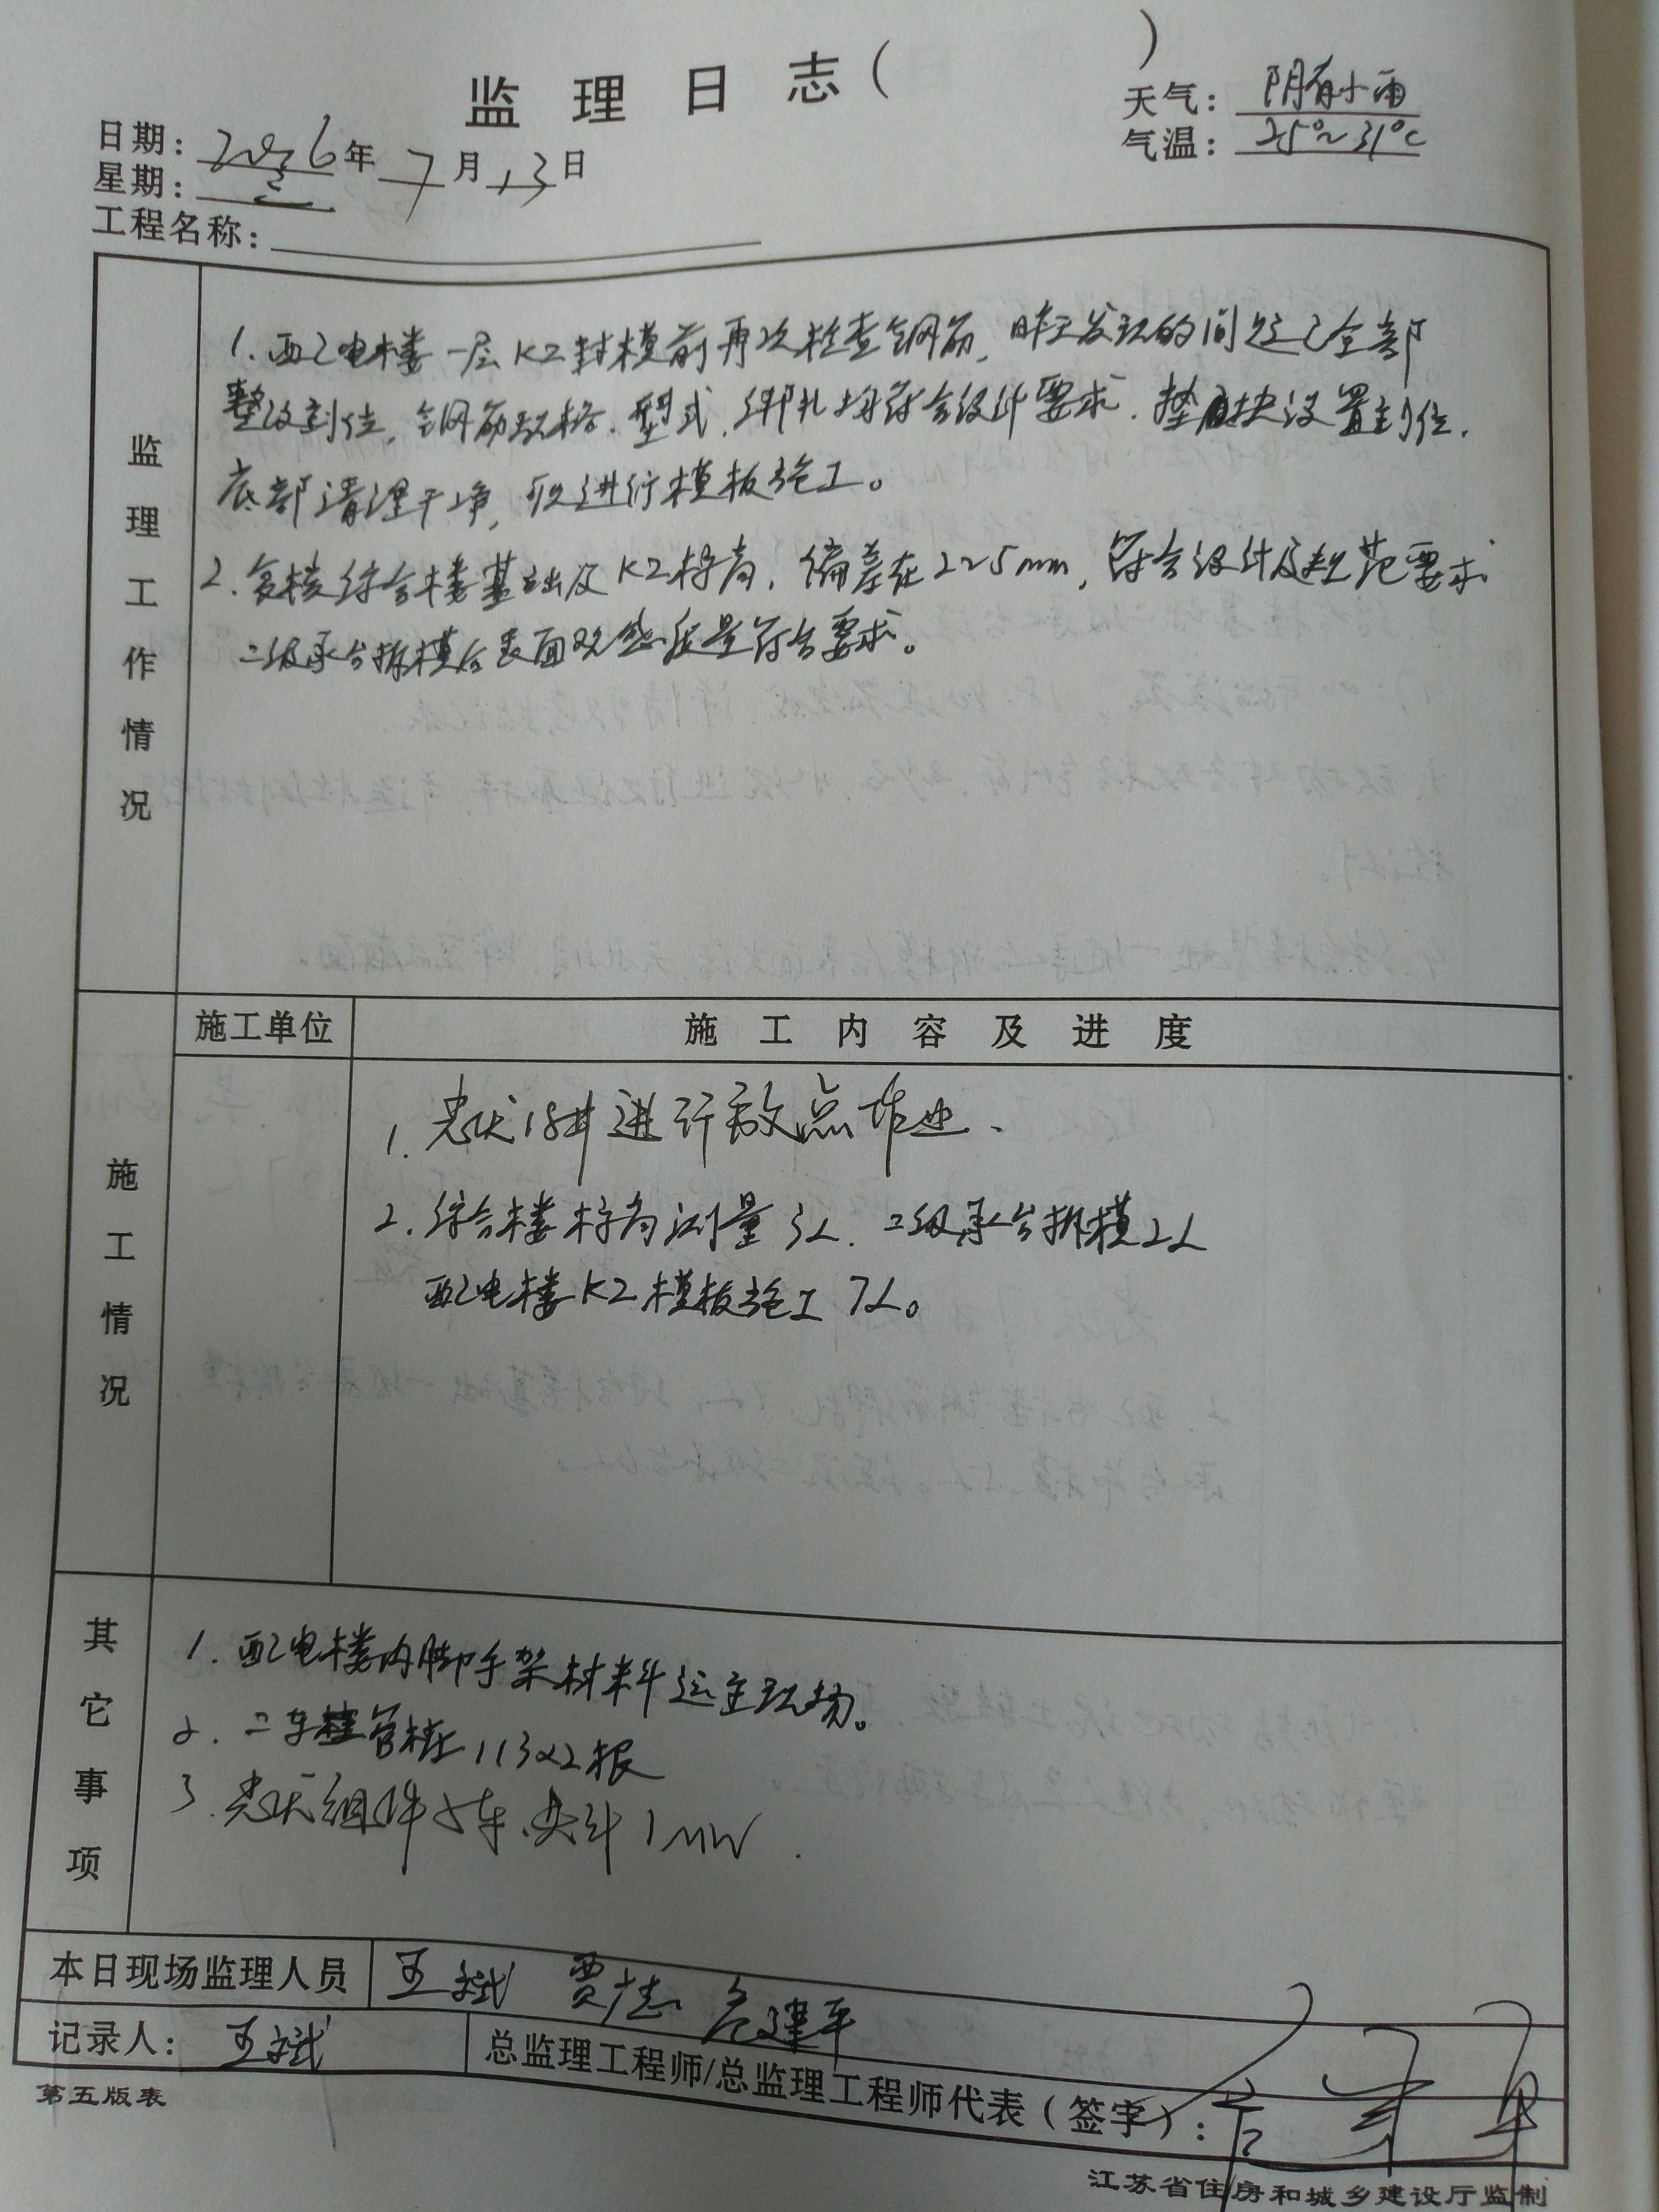 监理日志（ ）
天气：阴有小雨
气温：25°~31°C
日期：2016年7月13日
星期：三
工程名称：
监理工作情况
1.配电楼一层KZ封模前再次检查钢筋，昨天发现的问题已全部
整改到位，钢筋规格、型式、绑扎均符合设计要求，垫块设置到位，
底部清理干净，可进行模板施工。
2.复核综合楼基础及KZ标高，偏差在2~5mm，符合设计及规范要求
二级承台拆模后表面观感质量符合要求。
施工情况
施工单位
施工内容及进度
1.光伏18#进行放点作业、
2.综合楼标高测量3人，二级承台拆模2人
配电楼KZ模板施工7人。
其它事项
1.配电楼内脚手架材料运至现场。
2.二车管桩113×2根
3.光伏组件5车，共计1MW.
本日现场监理人员 王斌 贾志 建平
记录人：王斌
总监理工程师/总监理工程师代表（签字）：
第五版表
江苏省住房和城乡建设厅监制